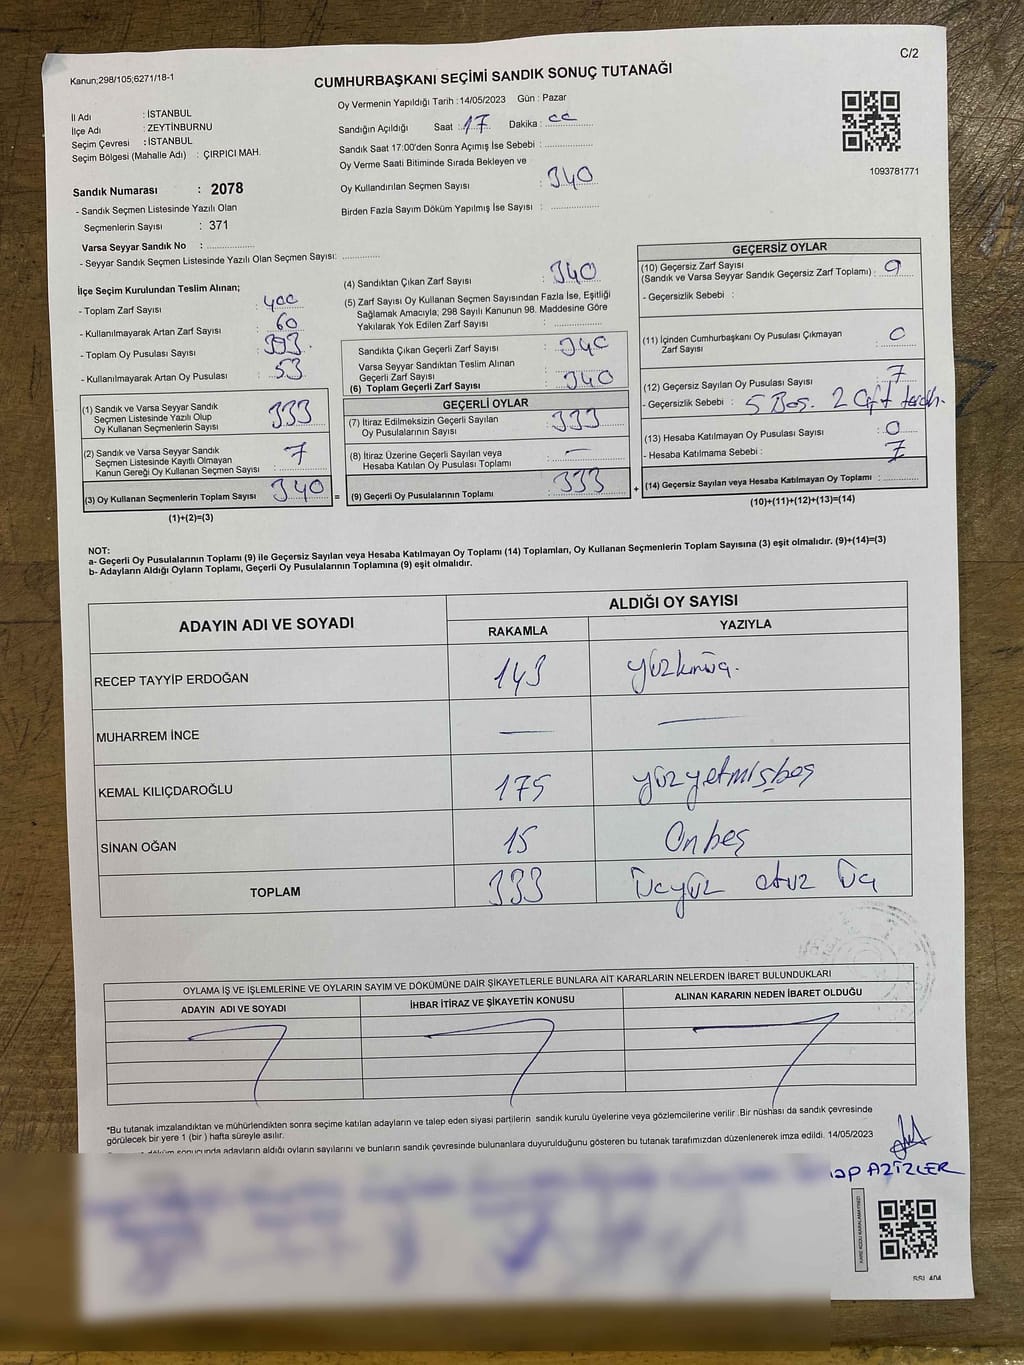 C/2
Kanun;298/105;6271/18-1
CUMHURBAŞKANI SEÇİMİ SANDIK SONUÇ TUTANAĞI
İl Adı : İSTANBUL
İlçe Adı : ZEYTİNBURNU
Seçim Çevresi : İSTANBUL
Seçim Bölgesi (Mahalle Adı) : ÇIRPICI MAH.
Sandık Numarası : 2078
- Sandık Seçmen Listesinde Yazılı Olan
Seçmenlerin Sayısı : 371
Varsa Seyyar Sandık No :
- Seyyar Sandık Seçmen Listesinde Yazılı Olan Seçmen Sayısı:
Oy Vermenin Yapıldığı Tarih :14/05/2023 Gün : Pazar
Sandığın Açıldığı Saat : 17 Dakika : 00
Sandık Saat 17:00'den Sonra Açımış İse Sebebi :
Oy Verme Saati Bitiminde Sırada Bekleyen ve
Oy Kullandırılan Seçmen Sayısı : 340
Birden Fazla Sayım Döküm Yapılmış İse Sayısı :
1093781771
İlçe Seçim Kurulundan Teslim Alınan;
- Toplam Zarf Sayısı : 400
- Kullanılmayarak Artan Zarf Sayısı : 60
- Toplam Oy Pusulası Sayısı : 393
- Kullanılmayarak Artan Oy Pusulası : 53
(1) Sandık ve Varsa Seyyar Sandık
Seçmen Listesinde Yazılı Olup
Oy Kullanan Seçmenlerin Sayısı : 333
(2) Sandık ve Varsa Seyyar Sandık
Seçmen Listesinde Kayıtlı Olmayan
Kanun Gereği Oy Kullanan Seçmen Sayısı : 7
(3) Oy Kullanan Seçmenlerin Toplam Sayısı : 340 =
(1)+(2)=(3)
(4) Sandıktan Çıkan Zarf Sayısı : 340
(5) Zarf Sayısı Oy Kullanan Seçmen Sayısından Fazla İse, Eşitliği
Sağlamak Amacıyla; 298 Sayılı Kanunun 98. Maddesine Göre
Yakılarak Yok Edilen Zarf Sayısı :
Sandıkta Çıkan Geçerli Zarf Sayısı : 340
Varsa Seyyar Sandıktan Teslim Alınan
Geçerli Zarf Sayısı :
(6) Toplam Geçerli Zarf Sayısı : 340
GEÇERLİ OYLAR
(7) İtiraz Edilmeksizin Geçerli Sayılan
Oy Pusulalarının Sayısı : 333
(8) İtiraz Üzerine Geçerli Sayılan veya
Hesaba Katılan Oy Pusulası Toplamı : —
(9) Geçerli Oy Pusulalarının Toplamı : 333 +
GEÇERSİZ OYLAR
(10) Geçersiz Zarf Sayısı
(Sandık ve Varsa Seyyar Sandık Geçersiz Zarf Toplamı) : 0
- Geçersizlik Sebebi :
(11) İçinden Cumhurbaşkanı Oy Pusulası Çıkmayan
Zarf Sayısı : 0
(12) Geçersiz Sayılan Oy Pusulası Sayısı : 7
- Geçersizlik Sebebi : 5 Boş. 2 Çift tercih.
(13) Hesaba Katılmayan Oy Pusulası Sayısı : 0
- Hesaba Katılmama Sebebi :
(14) Geçersiz Sayılan veya Hesaba Katılmayan Oy Toplamı : 7
(10)+(11)+(12)+(13)=(14)
NOT:
a- Geçerli Oy Pusulalarının Toplamı (9) ile Geçersiz Sayılan veya Hesaba Katılmayan Oy Toplamı (14) Toplamları, Oy Kullanan Seçmenlerin Toplam Sayısına (3) eşit olmalıdır. (9)+(14)=(3)
b- Adayların Aldığı Oyların Toplamı, Geçerli Oy Pusulalarının Toplamına (9) eşit olmalıdır.
ADAYIN ADI VE SOYADI ALDIĞI OY SAYISI
RAKAMLA YAZIYLA
RECEP TAYYİP ERDOĞAN 143 yüzkırküç.
MUHARREM İNCE — —
KEMAL KILIÇDAROĞLU 175 yüzyetmişbeş
SİNAN OĞAN 15 Onbeş
TOPLAM 333 üçyüz otuz üç
OYLAMA İŞ VE İŞLEMLERİNE VE OYLARIN SAYIM VE DÖKÜMÜNE DAİR ŞİKAYETLERLE BUNLARA AİT KARARLARIN NELERDEN İBARET BULUNDUKLARI
ADAYIN ADI VE SOYADI İHBAR İTİRAZ VE ŞİKAYETİN KONUSU ALINAN KARARIN NEDEN İBARET OLDUĞU
*Bu tutanak imzalandıktan ve mühürlendikten sonra seçime katılan adayların ve talep eden siyasi partilerin sandık kurulu üyelerine veya gözlemcilerine verilir .Bir nüshası da sandık çevresinde
görülecek bir yere 1 (bir ) hafta süreyle asılır.
döküm sonucunda adayların aldığı oyların sayılarını ve bunların sandık çevresinde bulunanlara duyurulduğunu gösteren bu tutanak tarafımızdan düzenlenerek imza edildi. 14/05/2023
AZİZLER